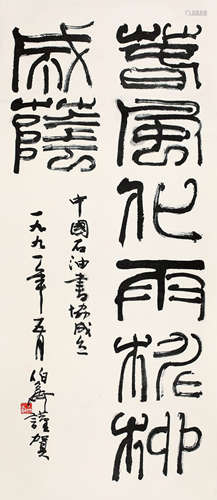 春風化雨桃柳
成蔭
中國石油書協成立
一九九一年五月
謹賀